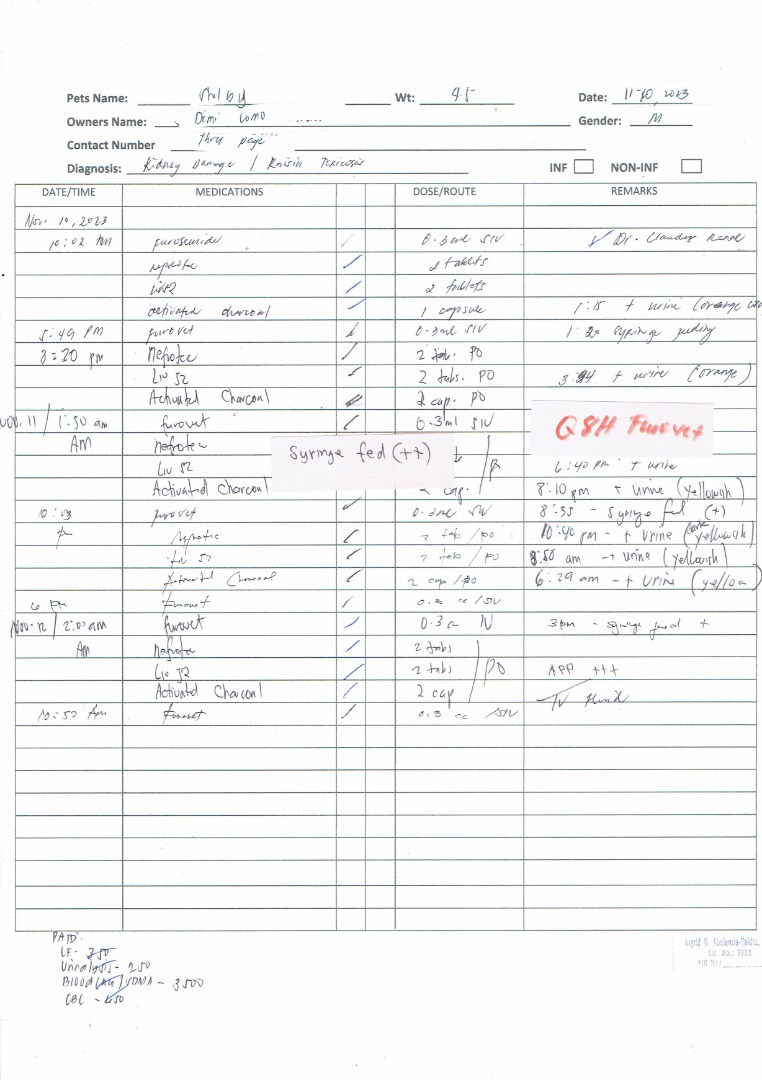 Pets Name: Wt: 4.5 Date: 11-10, 2023
Owners Name: Demi Gender: M
Contact Number thru page
Diagnosis: Kidney Damage / Raisin Toxicosis INF NON-INF
DATE/TIME MEDICATIONS DOSE/ROUTE REMARKS
Nov. 10, 2023
10:02 furosemide 0.3ml SIV Dr.
2 tablets
Liv52 2 tablets
activated charcoal 1 capsule 1:15 + urine (orange
5:49 PM furovet 0.3ml SIV 1:20 syringe feeding
3:20 pm Nefrotec 2 tab. PO
Liv 52 2 tabs. PO + urine (orange)
Activated Charcoal 2 cap. PO
Nov. 11 / 1:50 am furovet 0.3ml SIV Q8H Furovet
AM Nefrotec Syringe fed (++)
Liv 52 6:40 pm + urine
Activated Charcoal cap. 8:10 pm + urine (yellowish)
furovet 8:35 - Syringe fed (+)
Nefrotec 2 tab /po 10:40 pm - + urine (dark yellowish)
Liv 52 2 tab /po 8:50 am -+ urine (yellowish)
Activated Charcoal 2 cap /po 6:29 am -+ urine (yellow)
6 pm furovet 0.3 cc /SIV
Nov-12 / 2:00 am furovet 0.3 cc IV 3pm - syringe feed +
Am Nefrotec 2 tabs
Liv 52 2 tabs PO APP +++
Activated Charcoal 2 cap IV fluid
10:52 furovet 0.3 cc /SIV
PAID:
LF - 350
Urinalysis - 250
SDMA - 3500
CBC -
Lic. No.: 7381